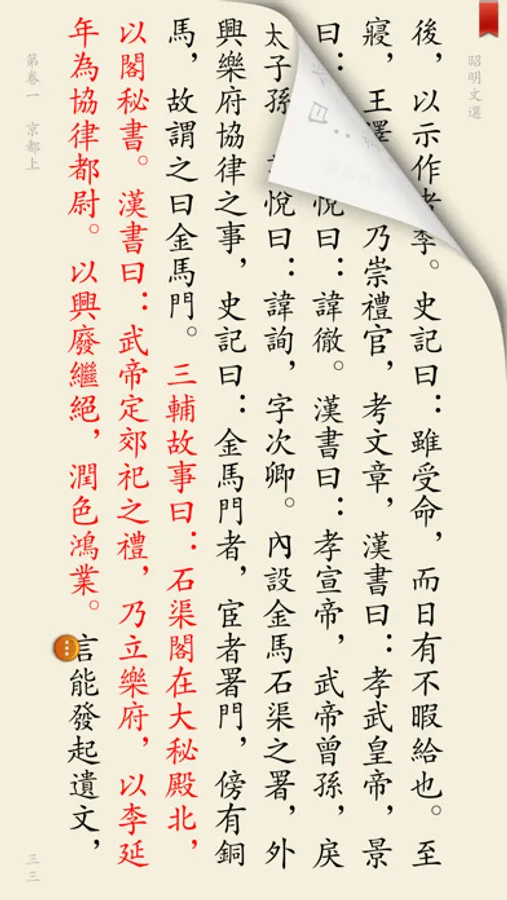 昭明文選
後，以示作 。史記曰：雖受命，而日有不暇給也。至
寢，王澤 乃崇禮官，考文章，漢書曰：孝武皇帝，景
曰： 悅曰：諱徹。漢書曰：孝宣帝，武帝曾孫，戾
太子孫 悅曰：諱詢，字次卿。內設金馬石渠之署，外
興樂府協律之事，史記曰：金馬門者，宦者署門，傍有銅
馬，故謂之曰金馬門。三輔故事曰：石渠閣在大秘殿北，
以閣秘書。漢書曰：武帝定郊祀之禮，乃立樂府，以李延
年為協律都尉。以興廢繼絕，潤色鴻業。言能發起遺文，
第卷一 京都上
三三